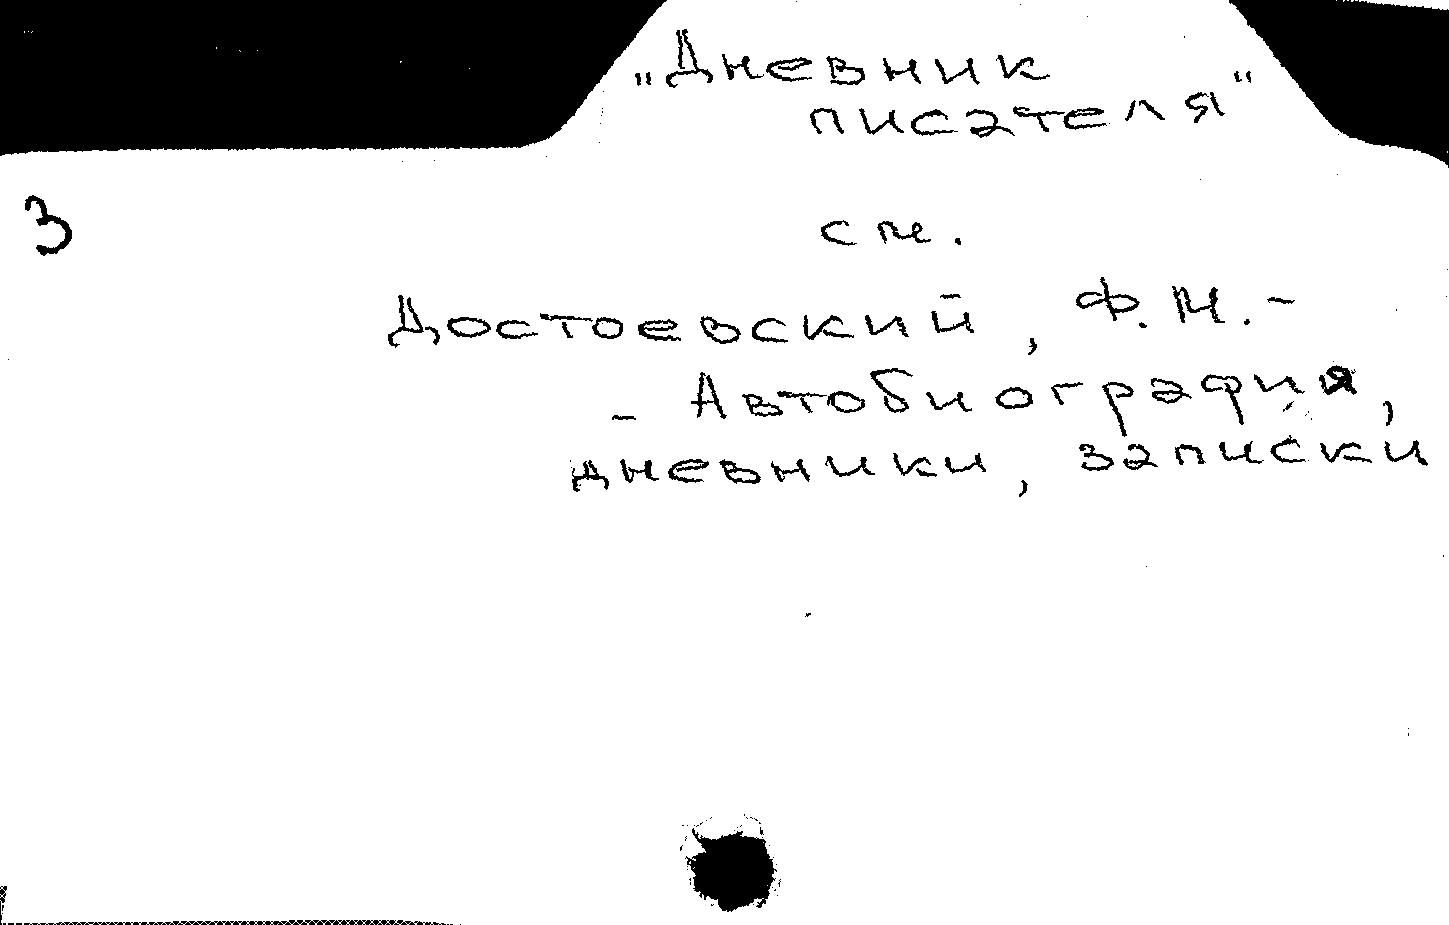 „Дневник
писателя"
3
см.
Достоевский, Ф.М.-
- Автобиография,
дневники, записки